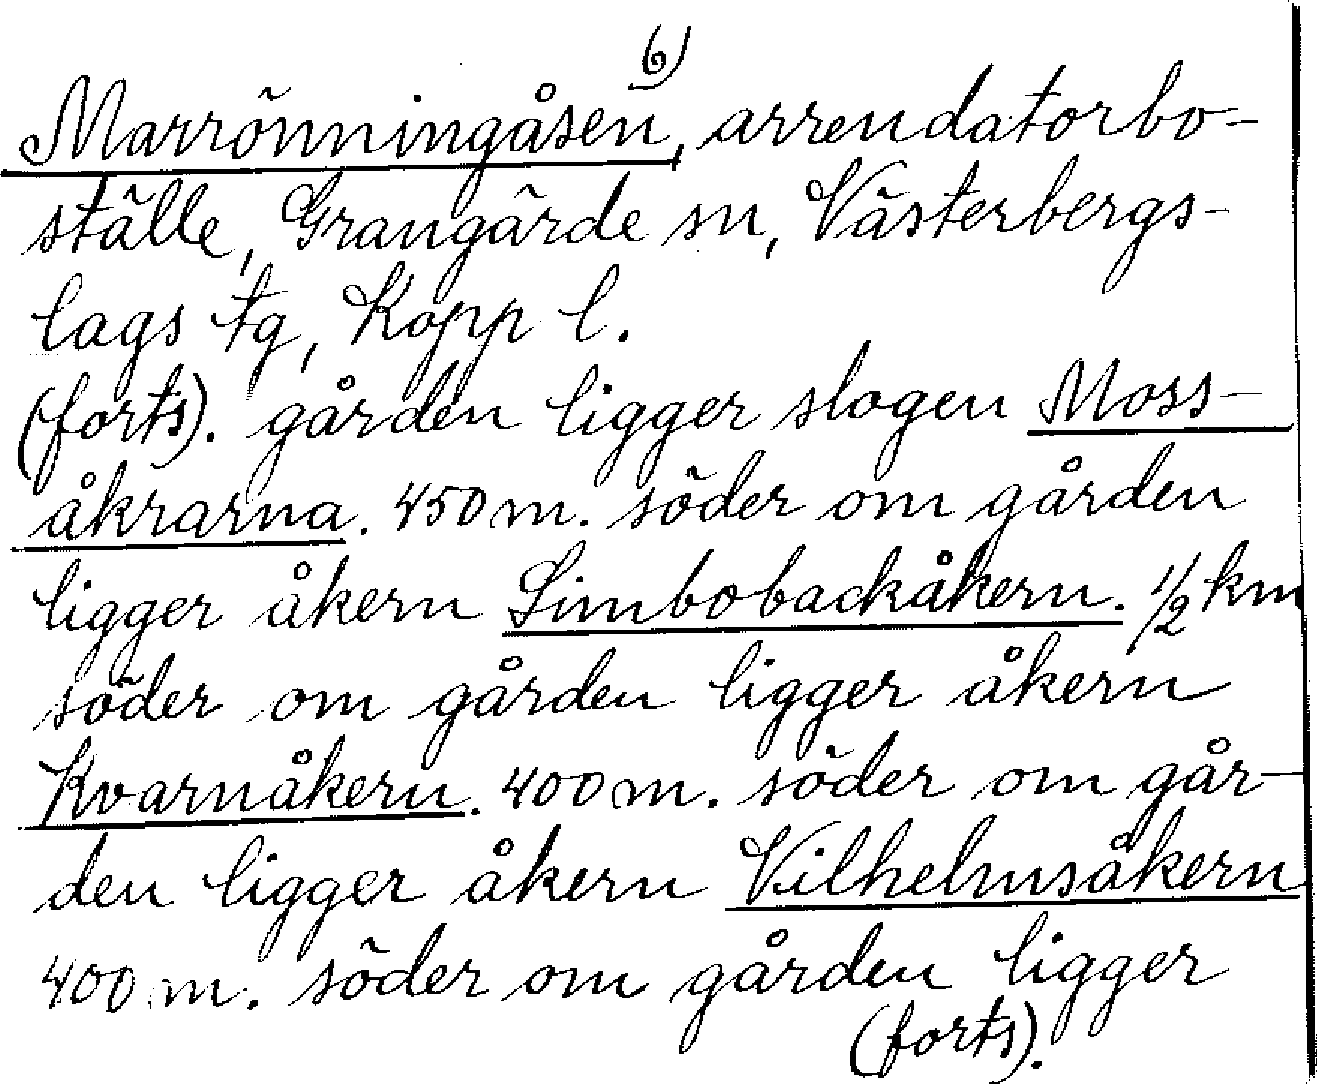 6)
Marrönningåsen, arrendatorbo-
ställe, Grangärde sn, Västerbergs-
lags tg, Kopp l.
(forts). gården ligger slogen Moss-
åkrarna. 450 m. söder om gården
ligger åkern Limbobackåkern. 1/2 km
söder om gården ligger åkern
Kvarnåkern. 400 m. söder om går-
den ligger åkern Vilhelmsåkern
400 m. söder om gården ligger
(forts).